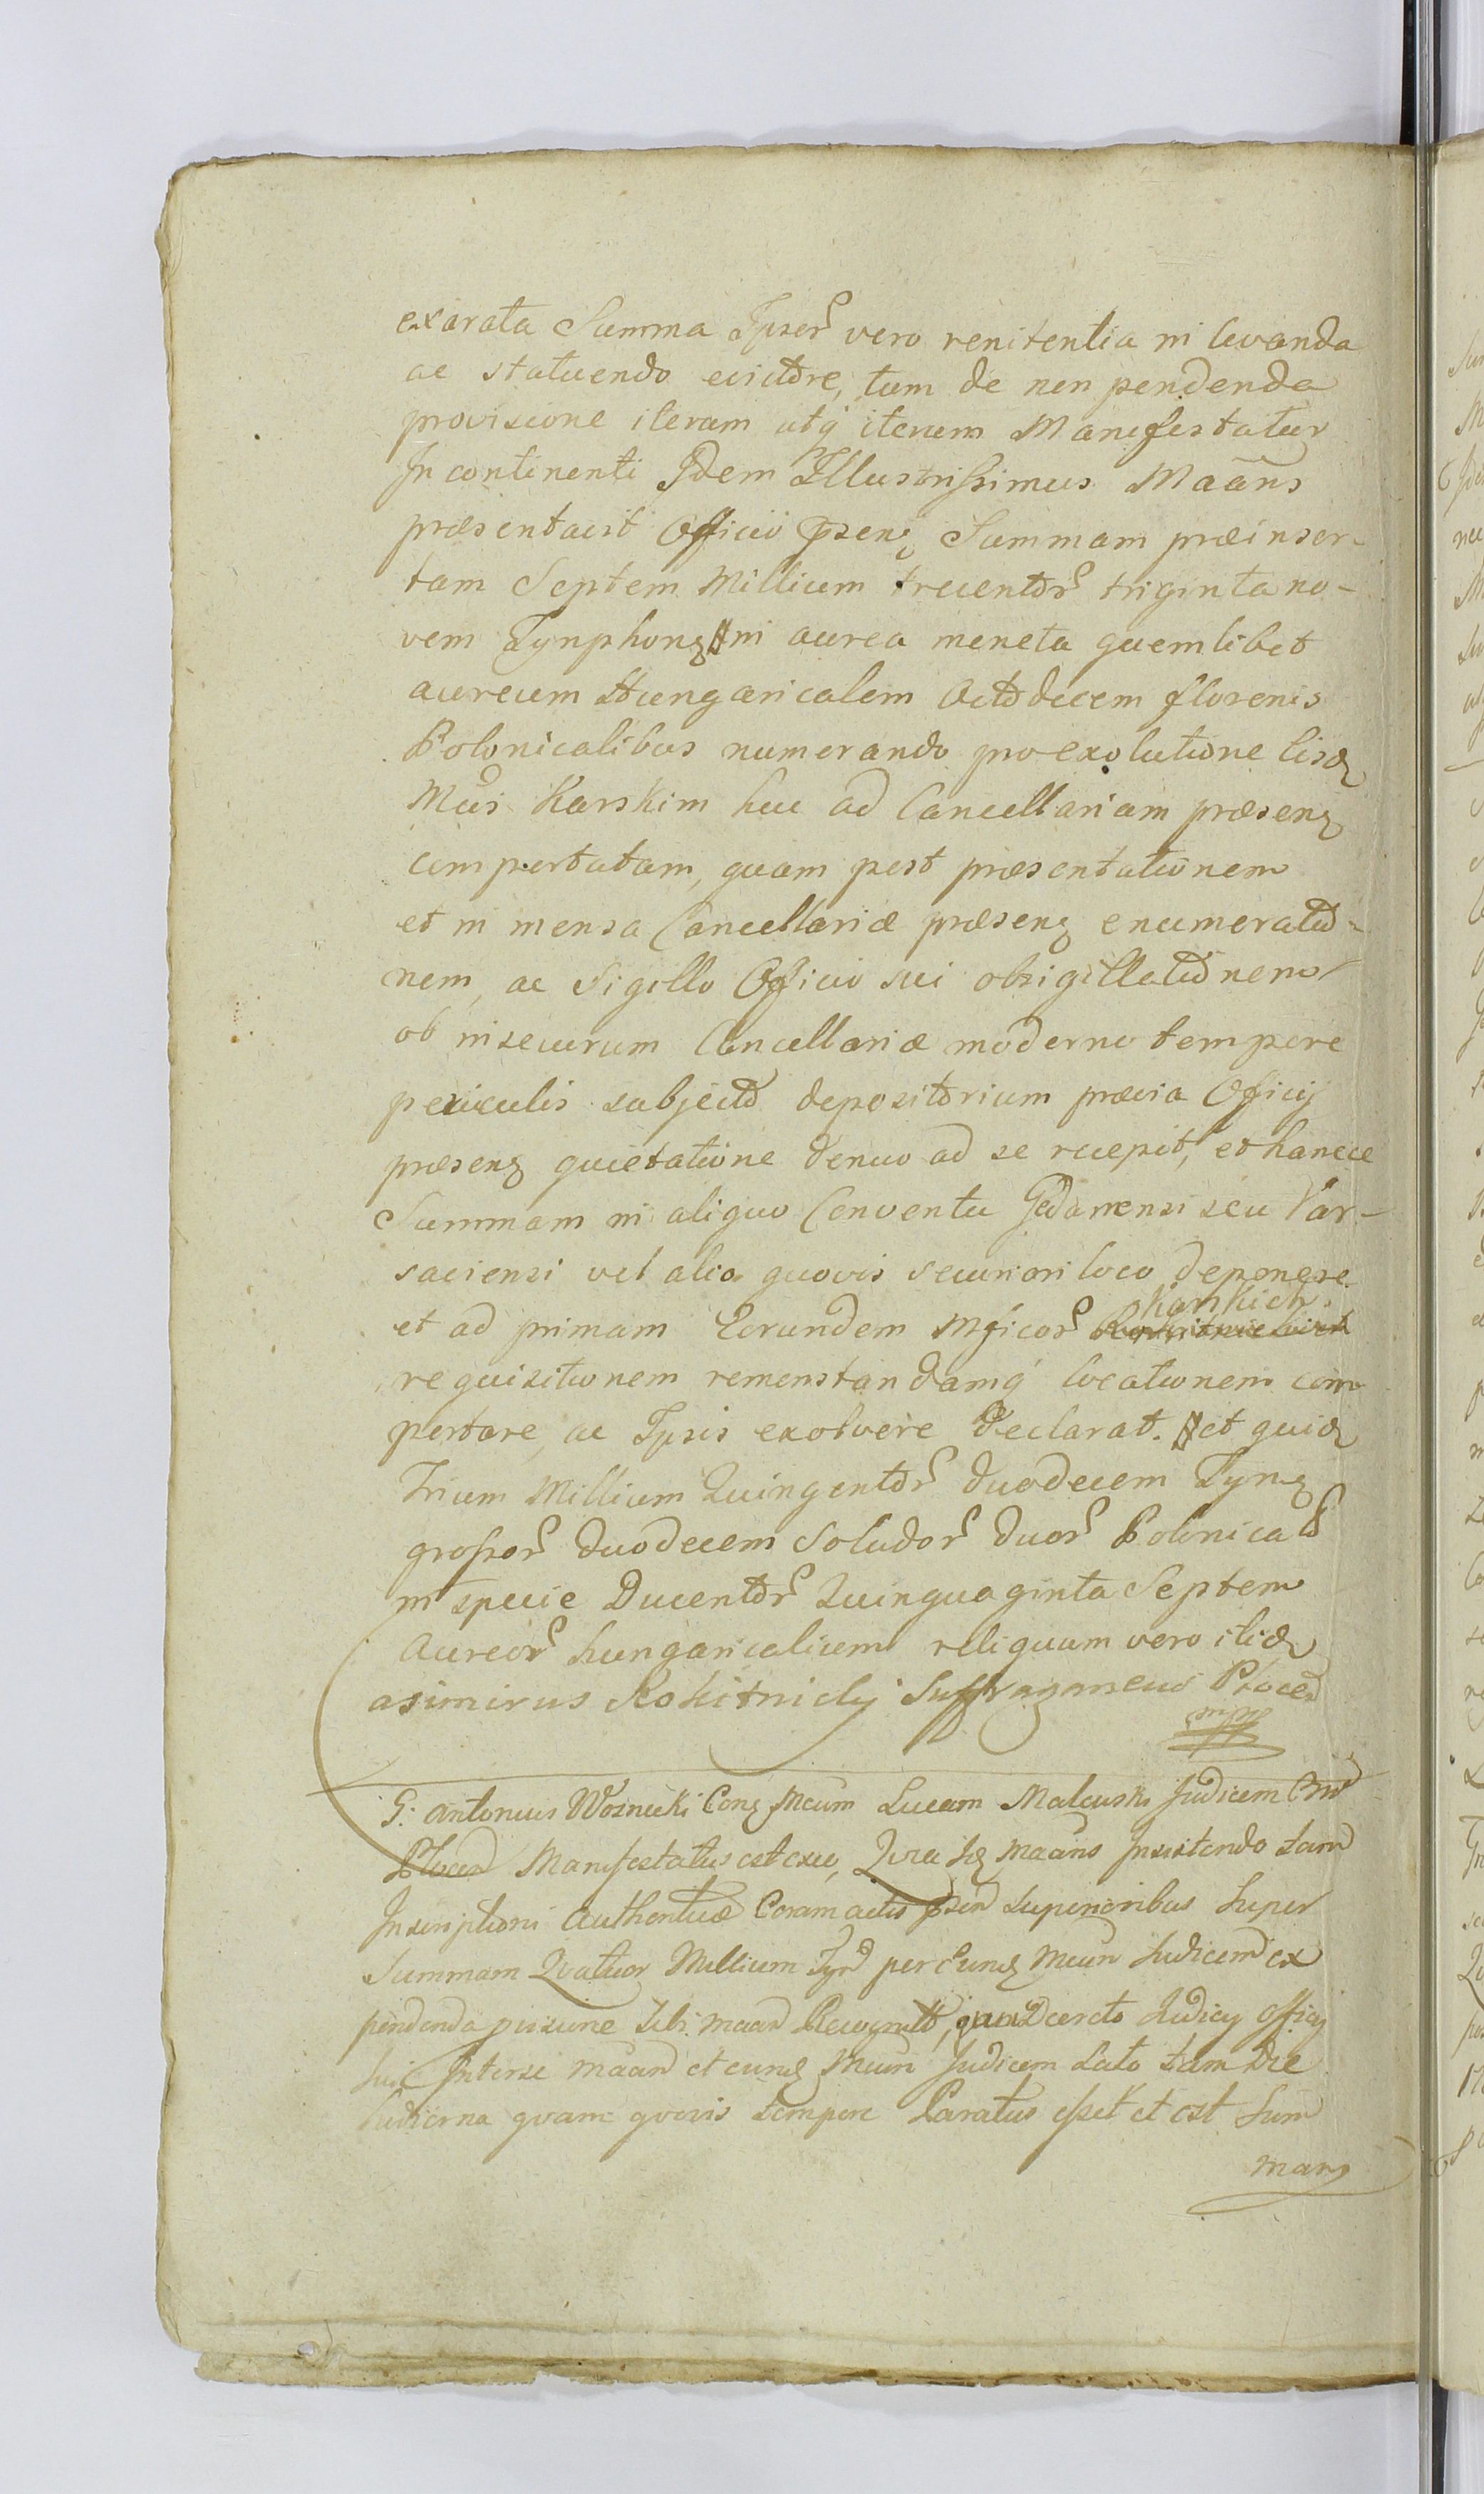 exarata Summa Ipsor̃ vero renitentia in levanda
ac statuendo evictōre, tum de non pendenda
provisione iterum atq́ iterum Manifestatur
In continenti Idem Illustrissimus Maāns
præsentavit Officio Pseng Summam præinser-
tam Septem Millium trecentor̃ triginta no-
vem Tynphong in aurea moneta quemlibet
aureum Hungaricalem Octodecem florenis
Polonicalibus numerando pro exolutione iisd
Mcis Karskim huc ad Cancellariam præseng
comportatam, quam post præsentationem
et in mensa Cancellariæ præseng enumeratio-
nem, ac Sigillo Officio sui obsigillationem
ob insecurum Cancellariæ moderno tempore
periculis subjecto depositorium prævia Officij
præseng quietatione denuo ad se recepit, et hancce
Summam in aliquo Conventu Gedanensi seu Var-
saviensi vel alio quovis securiori loco deponere
et ad primam Eorundem Mficor̃ Karskich
requisitionem remonstandamq́ locationem com
portare, ac Ipsis exolvere declarat. et quid
Trium Millium Quingentor̃ duodecem Tyng
grossor̃ duodecem Solidor̃ duor̃ Polonical
in specie Ducentor̃ Quinquaginta Septem
Aureor̃ hungaricalium reliquam vero
asimirus Rokitnicky Suffraganeus Plocen
mpp
G: Antonius Woznicki Cong Mcum Lucam Malewski Judicem
Plocen Manifestatus est exee, Quia Maāns Insistendo tam
Inscriptioni Authenticæ Coram actis psen superioribus super
Summam Quatuor Millium Tyn per eung Mcum Judicem ex
pendenda Sibi Maān Recognito, quam Decreto Judicy Officij
sui Interse Maān et eung Mcum Judicem Lato tam Die
hodierna quam quovis tempore Paratus esset et est Sum
mang